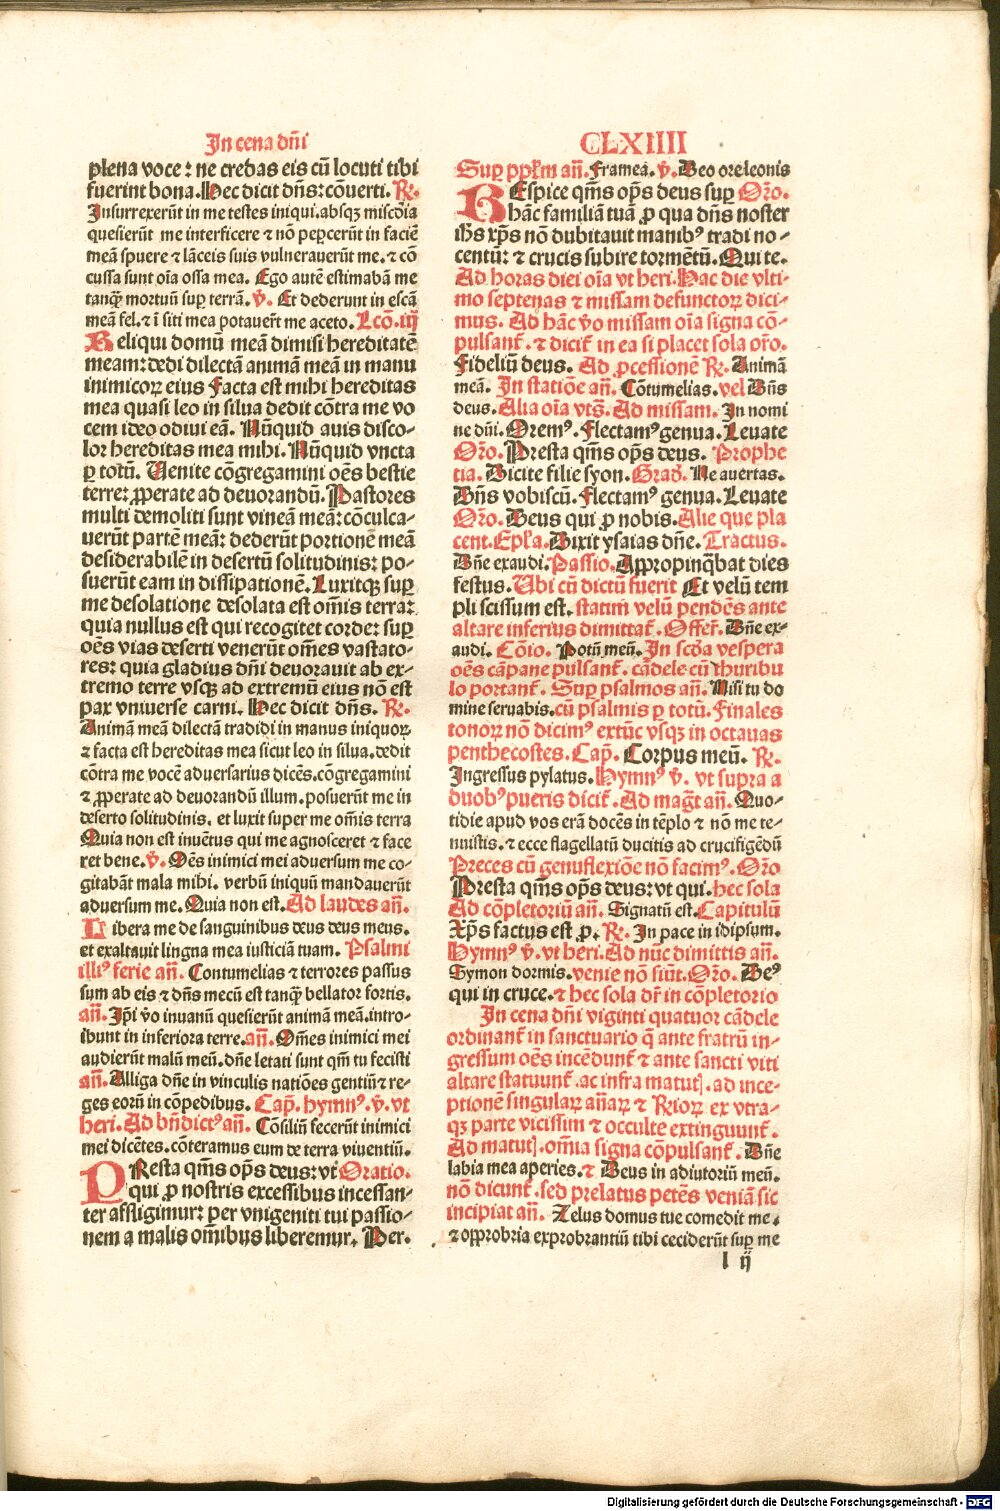 In cena dñi
plena voce: ne credas eis cũ locuti tibi
fuerint bona. Hec dicit dñs: cõuerti. R̃.
Insurrexerũt in me testes iniqui. absqꝫ miscďia
quesierũt me interficere ⁊ nõ peꝑcerũt in faciẽ
meã spuere ⁊ lãceis suis vulnerauerũt me. ⁊ cõ
cussa sunt oĩa ossa mea. Ego autẽ estimabã me
tanqᷓ mortuũ suꝑ terrã. v̾. Et dederunt in escã
meã fel. ⁊ ĩ siti mea potauer̃t me aceto. Lcõ. iij
Reliqui domũ meã dimisi hereditatẽ
meam: dedi dilectã animã meã in manu
inimicoꝝ eius Facta est mihi hereditas
mea quasi leo in silua dedit cõtra me vo
cem ideo odiui eã. Nũquid auis disco-
lor hereditas mea mihi. Nũquid vncta
ꝑ totũ. Uenite cõgregamini oẽs bestie
terre: ꝓperate ad deuorandũ. Pastores
multi demoliti sunt vineã meã: cõculca-
uerũt partẽ meã: dederũt portionẽ meã
desiderabilẽ in desertũ solitudinis: po-
suerũt eam in dissipationẽ. Luxitqꝫ suꝑ
me desolatione desolata est om̃is terra:
quia nullus est qui recogitet corde: suꝑ
oẽs vias deserti venerũt om̃es vastato-
res: quia gladius dñi deuorauit ab ex-
tremo terre vsqꝫ ad extremũ eius nõ est
pax vniuerse carni. Hec dicit dñs. R̃.
Animã meã dilectã tradidi in manus iniquoꝝ
⁊ facta est hereditas mea sicut leo in silua. dedit
cõtra me vocẽ aduersarius dicẽs. cõgregamini
⁊ ꝓperate ad deuorandũ illum. posuerũt me in
deserto solitudinis. et luxit super me om̃is terra
Quia non est inuẽtus qui me agnosceret ⁊ face
ret bene. v̾. Oẽs inimici mei aduersum me co-
gitabãt mala mihi. verbũ iniquũ mandauerũt
aduersum me. Quia non est. Ad laudes añ.
Libera me de sanguinibus deus deus meus.
et exaltauit lingna mea iusticiã tuam. Psalmi
illiꝰ ferie añ. Contumelias ⁊ terrores passus
sum ab eis ⁊ dñs mecũ est tanqᷓ bellator fortis.
añ. Ip̃i ṽo inuanũ quesierũt animã meã. intro-
ibunt in inferiora terre. añ. Om̃es inimici mei
audierũt malũ meũ. dñe letati sunt qm̃ tu fecisti
añ. Alliga dñe in vinculis natiões gentiũ ⁊ re-
ges eorũ in cõpedibus. Cap̃. hymnꝰ. v̾. vt
heri. Ad bñdictꝰ añ. Cõsiliũ fecerũt inimici
mei dicẽtes. cõteramus eum de terra viuentiũ.
PResta qm̃s op̃s deus: vt Oratio.
qui ꝓ nostris excessibus incessan-
ter affligimur: per vnigeniti tui passio-
nem a malis om̃ibus liberemur. Per.
CLXIIII
Suꝑ pp̃ľm añ. Framea. v̾. Deo ore leonis
REspice qm̃s op̃s deus suꝑ Orõ.
hãc familiã tuã ꝓ qua dñs noster
ih̃s xp̃s nõ dubitauit manibꝰ tradi no-
centũ: ⁊ crucis subire tormẽtũ. Qui te.
Ad horas diei oĩa vt heri. Hac die vlti-
mo septenas ⁊ missam defunctoꝝ dici-
mus. Ad hãc ṽo missam oĩa signa cõ-
pulsant̃. ⁊ dicit̃ in ea si placet sola orõ.
Fideliũ deus. Ad ꝓcessionẽ R̃. Animã
meã. In statiõe añ. Cõtumelias. vel Dñs
deus. Alia oĩa vts̃. Ad missam. In nomi
ne dñi. Oremꝰ. Flectamꝰ genua. Leuate
Orõ. Presta qm̃s op̃s deus. Prophe
tia. Dicite filie syon. Grad̃. Ne auertas.
Dñs vobiscũ. Flectamꝰ genua. Leuate
Orõ. Deus qui ꝓ nobis. Alie que pla
cent. Ep̃ľa. Dixit ysaias dñe. Tractus.
Dñe exaudi. Passio. Appropinq̃bat dies
festus. Ubi cũ dictũ fuerit Et velũ tem
pli scissum est. statim velũ pendẽs ante
altare inferius dimittat̃. Offer̃. Dñe ex-
audi. Cõio. Potũ meũ. In scďa vespera
oẽs cãpane pulsant̃. cãdele cũ thuribu
lo portant̃. Suꝑ psalmos añ. Nisi tu do
mine seruabis. cũ psalmis ꝑ totũ. Finales
tonoꝝ nõ dicimꝰ extũc vsqꝫ in octauas
penthecostes. Cap̃. Corpus meũ. R̃.
Ingressus pylatus. Hymnꝰ v̾. vt supra a
duobꝰ pueris dicit̃. Ad mag̃t añ. Quo-
tidie apud vos erã docẽs in tẽplo ⁊ nõ me te-
nuistis. ⁊ ecce flagellatũ ducitis ad crucifigẽdũ
Preces cũ genuflexiõe nõ facimꝰ. Orõ
Presta qm̃s op̃s deus: vt qui. hec sola
Ad cõpletoriũ añ. Signatũ est. Capitulũ
Xp̃s factus est ꝓ. R̃. In pace in idipsum.
Hymnꝰ v̾. vt heri. Ad nũc dimittis añ.
Symon dormis. venie nõ siũt. Orõ. Deꝰ
qui in cruce. ⁊ hec sola dr̃ in cõpletorio
In cena dñi viginti quatuor cãdele
ordinant̃ in sanctuario q̃ ante fratrũ in-
gressum oẽs incẽdunt̃ ⁊ ante sancti viti
altare statuunt̃. ac infra matutꝭ. ad ince-
ptionẽ singulaꝝ añaꝝ ⁊ R̃ioꝝ ex vtra-
qꝫ parte vicissim ⁊ occulte extinguunt̃.
Ad matutꝭ. om̃ia signa cõpulsant̃. Dñe
labia mea aperies. ⁊ Deus in adiutoriũ meũ.
nõ dicunt̃. sed prelatus petẽs veniã sic
incipiat añ. Zelus domus tue comedit me.
⁊ opprobria exprobrantiũ tibi ceciderũt suꝑ me
l ij
Digitalisierung gefördert durch die Deutsche Forschungsgemeinschaft - DFG